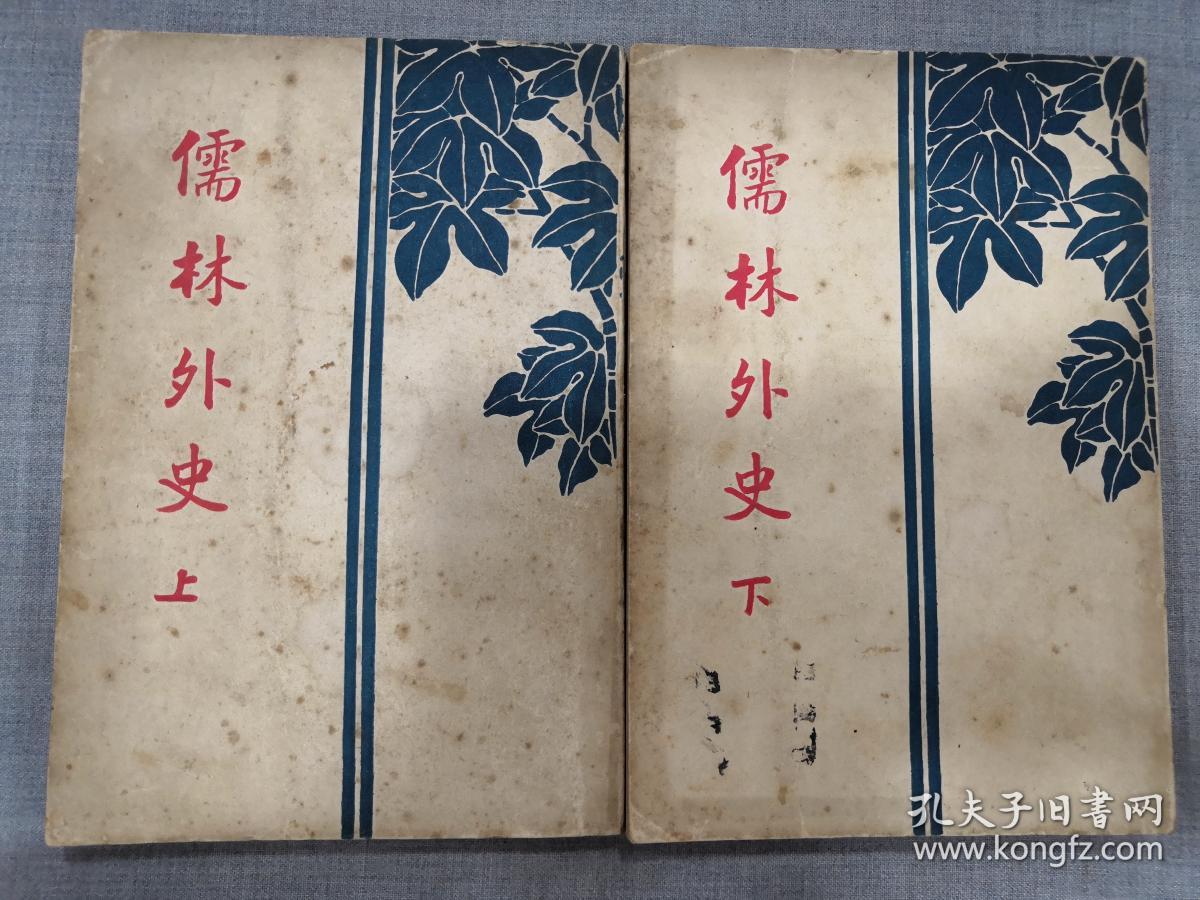 儒林外史
上
儒林外史
下
孔夫子旧書网
www.kongfz.com